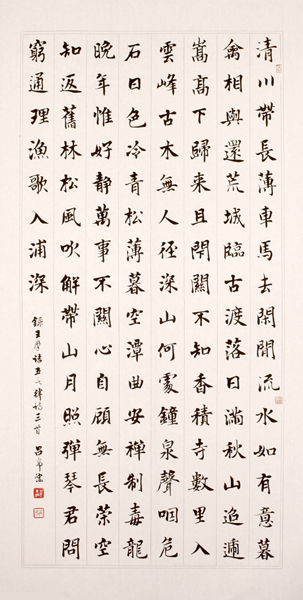 清川帶長薄車馬去閑閒流水如有意暮
禽相與還荒城臨古渡落日滿秋山迢遞
嵩高下歸來且閉關不知香積寺數里入
雲峰古木無人徑深山何處鐘泉聲咽危
石日色冷青松薄暮空潭曲安禪制毒龍
晚年惟好靜萬事不關心自顧無長策空
知返舊林松風吹解帶山月照彈琴君問
窮通理漁歌入浦深
錄王摩詰五言律詩三首 呂